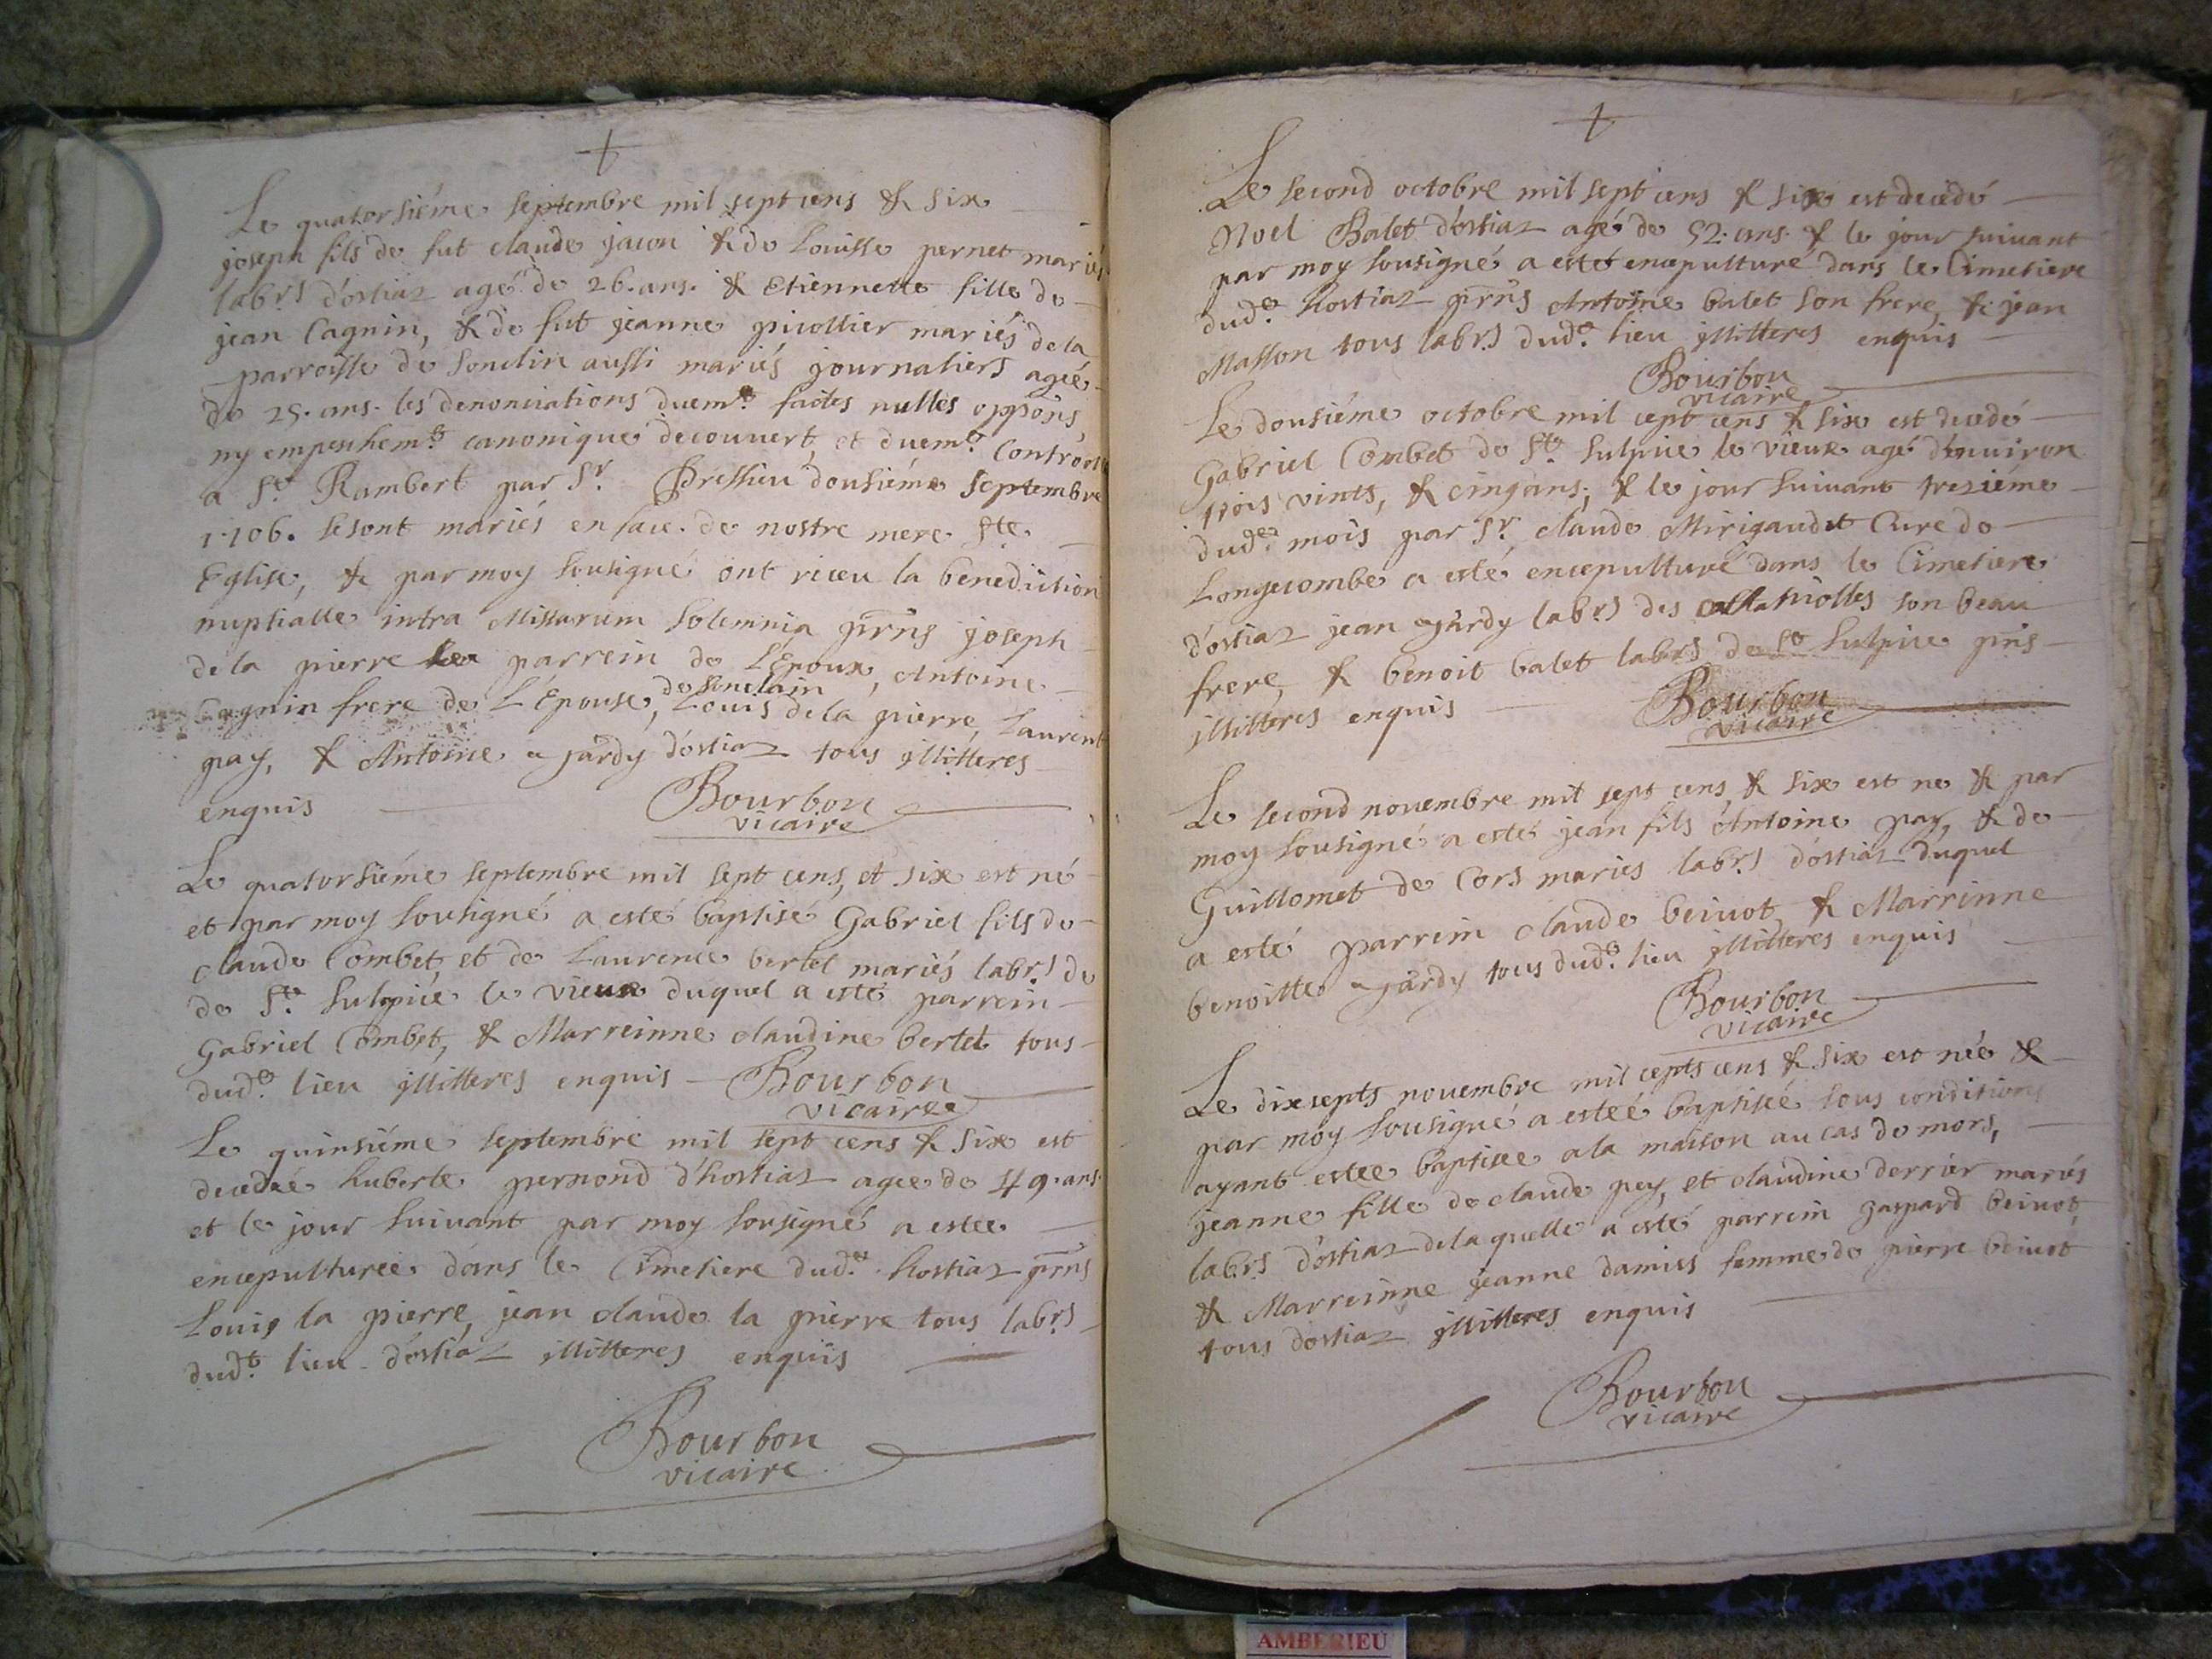 Le quatorsiéme septembre mil sept cens & six
joseph fils de fut claude jacon & de Louisse pernet mariés
labrs d'ostiaz agé de 26. ans. & Etiennette fille de
jean Cagnin, & de fut jeanne picollier mariés de la
parroisse de Souclin aussi mariés journaliers agée
de 25. ans. les denonciations duemt. faites nulles oppons,
ny empeshemt. canonique decouvert, et duemt. Controollé
a St. Rambert par Sr. Pressieu dousiéme septembre
1706. se sont mariés en face de nostre mere Ste.
Eglise, & par moy sousigné ont riceu la benediction
nuptialle intra Missarum Solemnia prns joseph
de la pierre parrein de L'Epoux, Antoine
de Souclain
Cagnin frere de L'Epouse, Louis de la pierre, Laurent
pay, & Antoine agardy d'ostiaz tous illitteres
enquis
Bourbon
vicaire
Le quatorsiéme septembre mil sept cens, et six est né
et par moy sousigné a esté baptisé Gabriel fils de
claude Combet, et de Laurence bertet mariés labr.s de
de St. Sulpice le vieux duquel a esté parrein
Gabriel Combet, & Marreinne claudine bertet tous
dudt. lieu illitteres enquis Bourbon
vicaire
Le quinsiéme septembre mil sept cens & six est
decedéé huberte pernond d'hostiaz agee de 49. ans.
et le jour suivant par moy sousigné a estee
encepulturée dans le Cimetiere dudt. hostiaz prns
Louis la pierre, jean claude la pierre tous labr.s
dudt. lieu d'ostiaz illitteres enquis
Bourbon
vicaire
Le second octobre mil sept cens & six est decedé
Noel Balet d'ostiaz agé de 52. ans. & le jour suivant
par moy sousigné a esté encepulturé dans le Cimetiere
dudt. hostiaz prns Antoine balet son frere, & jean
Masson tous labr.s dudt. lieu illitteres enquis
Bourbon
vicaire
Le dousiéme octobre mil cept cens & six est decedé
Gabriel Combet de St. Sulpice le vieux agé d'enuiron
trois vints, & cinq ans; & le jour suivant tresiéme
dudt. mois par Sr. claude Mirigaudet Cure de
Longecombe a esté encepulturé dans le Cimetiere
d'ostiaz jean agardy labr.s des son beau
frere, & benoit balet labrs de St. Sulpice prns
illitteres enquis
Bourbon
vicaire
Le second novembre mil sept cens & six est ne & par
moy sousigné a esté jean fils d'Antoine pay, & de
Guillomet de Cors maries labr.s d'ostiaz duquel
a esté parrein claude beivot, & Marrinne
benoitte agardy tous dudt. lieu illitteres enquis
Bourbon
vicaire
Le dixsepts novembre mil cepts cens & six est née &
par moy sousigné a esteé baptiséé sous conditions
ayant estee baptisee a la maison au cas de mors,
jeanne fille de claude pey, et claudine derrier mariés
labr.s d'ostiaz de la quelle a esté parrein gaspard beivot,
& Marreinne jeanne damiss femme de pierre beivot
tous dostiaz illitteres enquis
Bourbon
vicaire
AMBERIEU